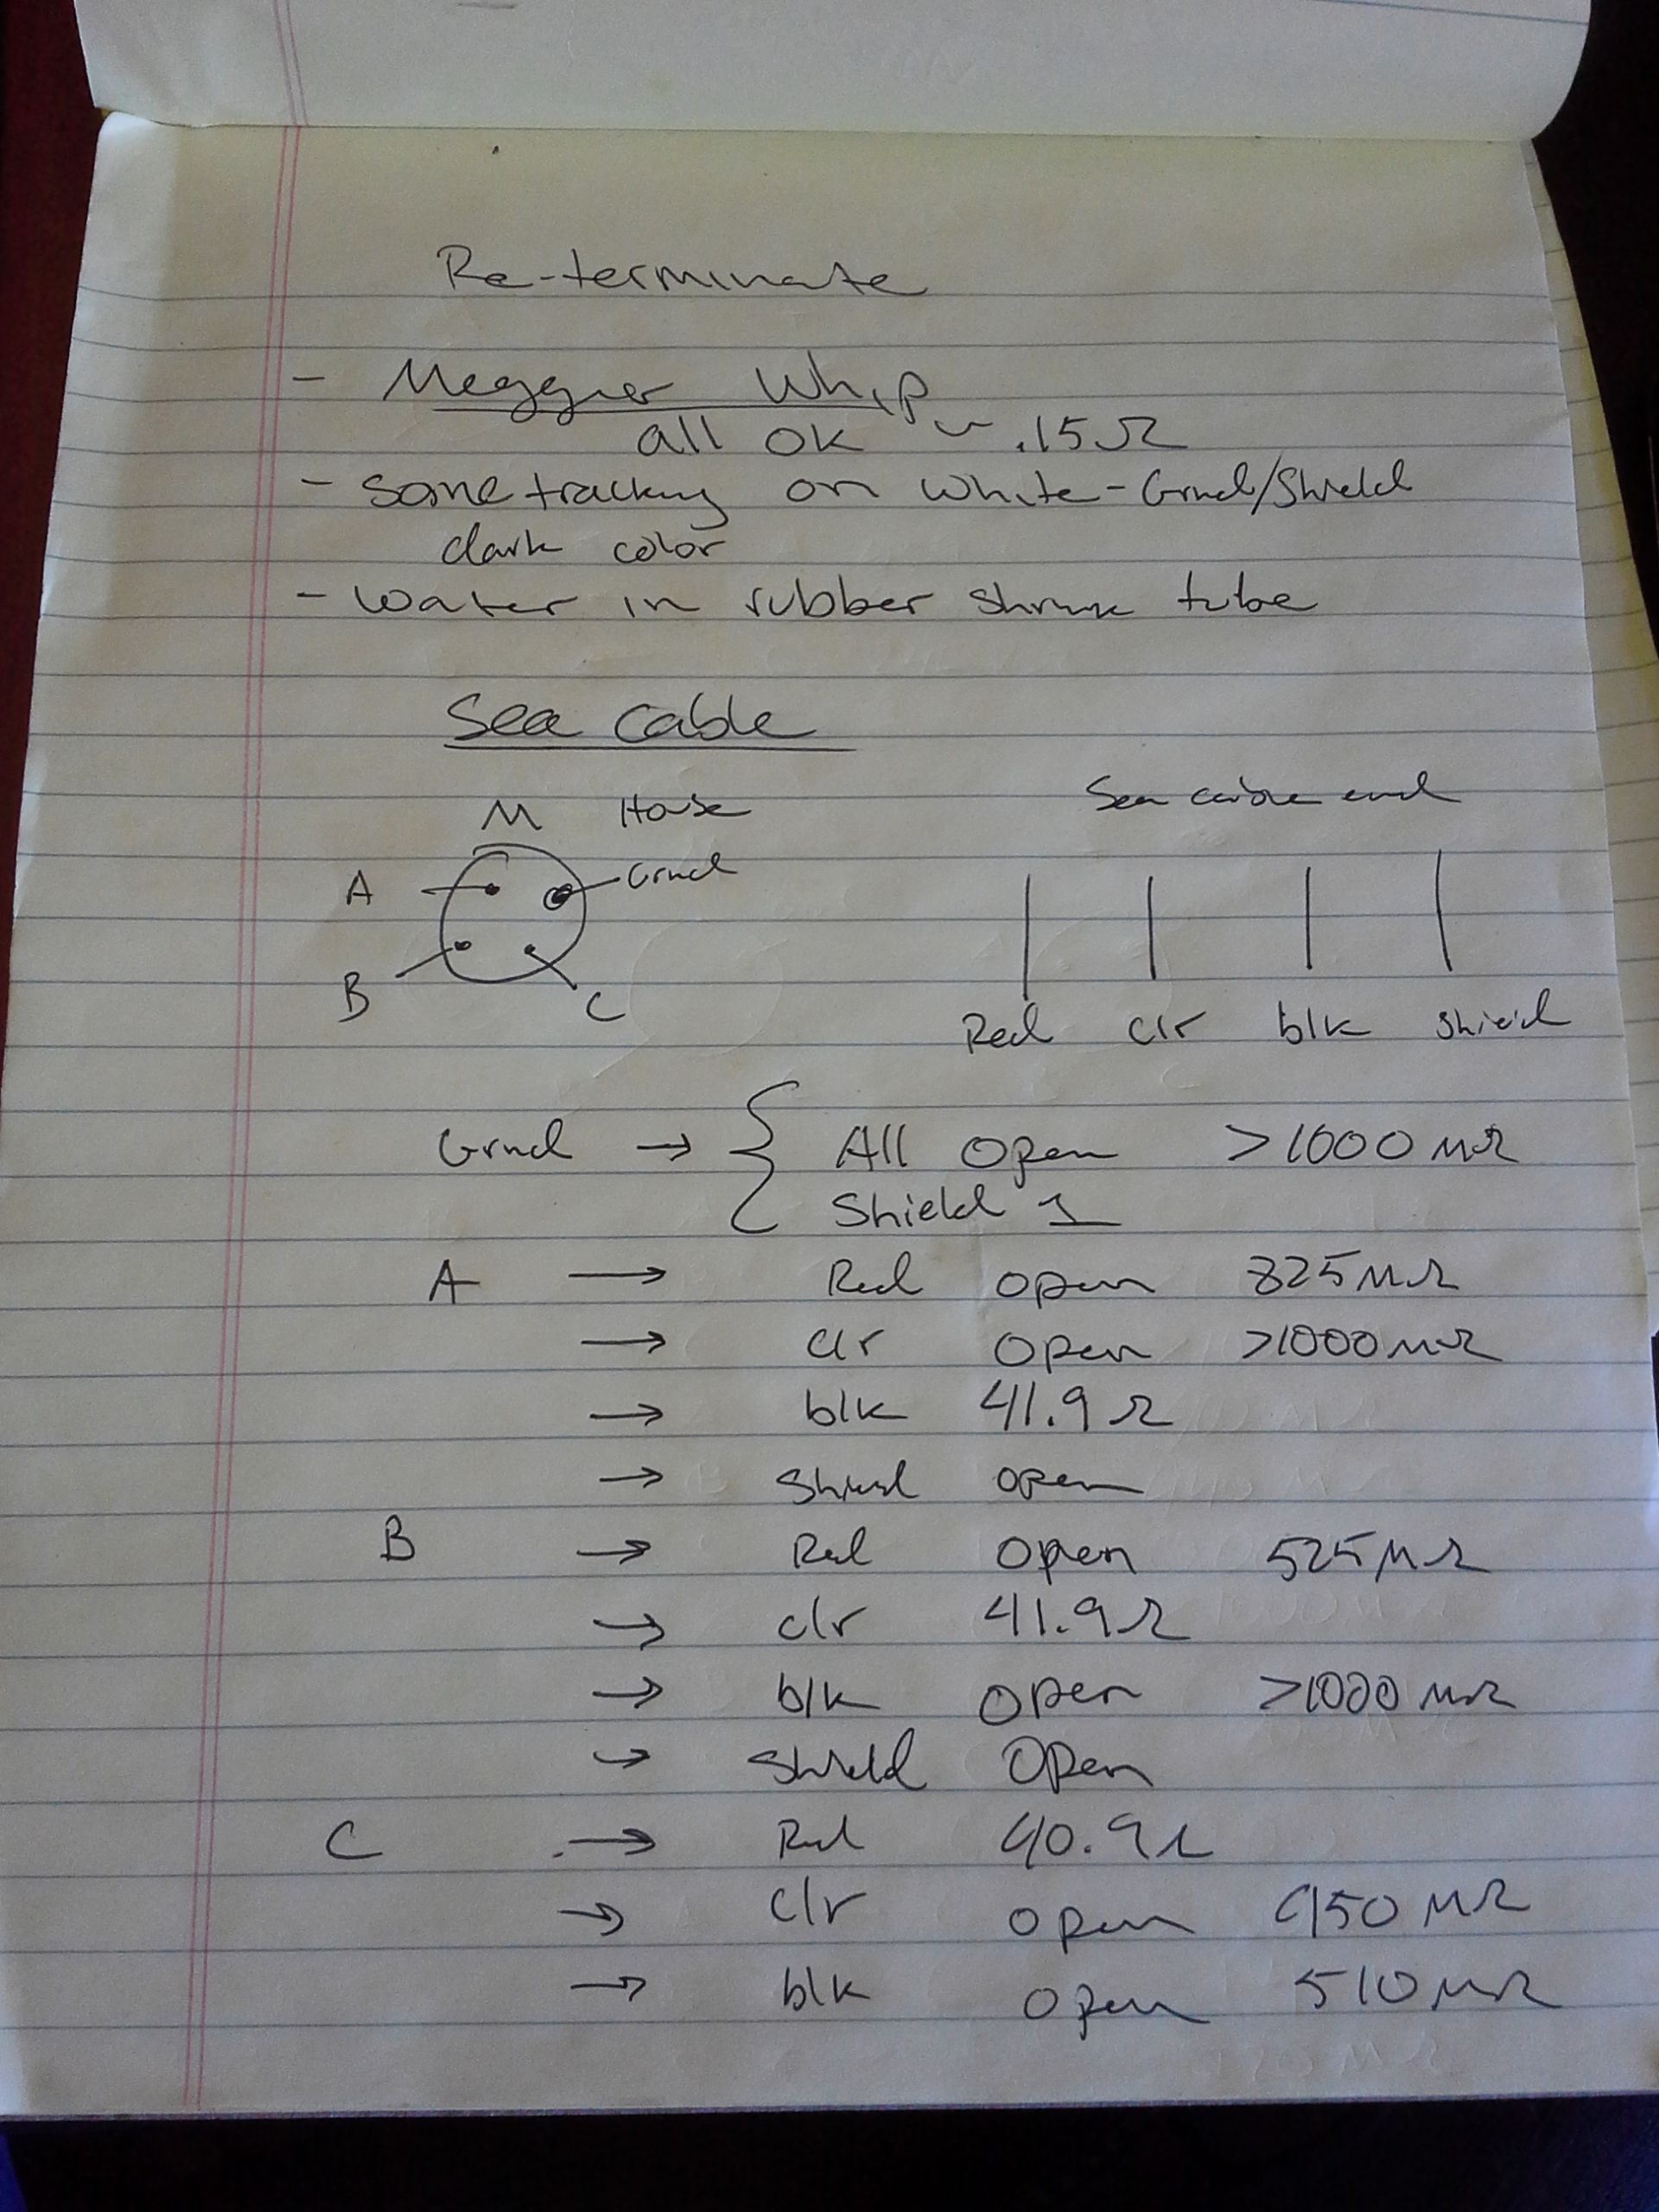 Re-terminate
- Meggner Whip
all ok ~ .15Ω
- some tracking on white-Grnd/Shield
dark color
- water in rubber shrink tube
Sea Cable
M House
Sea cable end
A
Grnd
B
C
Red clr blk shield
Grnd → { All Open >1000 MΩ
Shield 1
A → Red open 825MΩ
→ clr open >1000MΩ
→ blk 41.9Ω
→ Shield open
B → Red Open 525MΩ
→ clr 41.9Ω
→ blk Open >1000MΩ
→ Shield Open
C → Red 40.9Ω
→ clr open 950MΩ
→ blk open 510MΩ